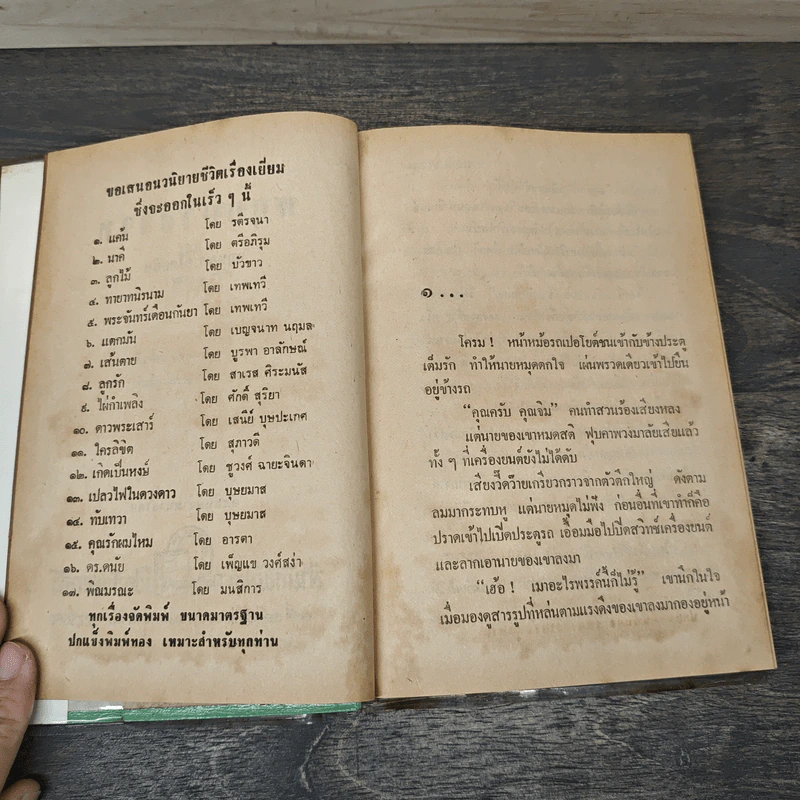 ขอเสนอนวนิยายชีวิตเรื่องเยี่ยม
ซึ่งจะออกในเร็ว ๆ นี้
๑. แค้น โดย รตีรจนา
๒. นาคี โดย ตรีอภิรุม
๓. ลูกไม้ โดย บัวขาว
๔. ทายาทนิรนาม โดย เทพเทวี
๕. พระจันทร์เดือนกันยา โดย เทพเทวี
๖. แตกมัน โดย เบญจนาท นฤมล
๗. เส้นตาย โดย บูรพา อาลักษณ์
๘. ลูกรัก โดย สาเรส ศิระมนัส
๙. ไผ่กำเพลิง โดย ศักดิ์ สุริยา
๑๐. ดาวพระเสาร์ โดย เสนีย์ บุษปะเกศ
๑๑. ใครลิขิต โดย สุภาวดี
๑๒. เกิดเป็นหงษ์ โดย ชูวงศ์ ฉายะจินดา
๑๓. เปลวไฟในดวงดาว โดย บุษยมาส
๑๔. ทับเทวา โดย บุษยมาส
๑๕. คุณรักผมไหม โดย อารตา
๑๖. ดร.ดนัย โดย เพ็ญแข วงศ์สง่า
๑๗. พิณมรณะ โดย มนสิการ
ทุกเรื่องจัดพิมพ์ ขนาดมาตรฐาน
ปกแข็งพิมพ์ทอง เหมาะสำหรับทุกท่าน
๑...
โครม ! หน้าหม้อรถเปอโยต์ชนเข้ากับข้างประตู
เต็มรัก ทำให้นายหมุดตกใจ เผ่นพรวดเดียวเข้าไปยืน
อยู่ข้างรถ
“คุณครับ คุณจิม” คนทำสวนร้องเสียงหลง
แต่นายของเขาหมดสติ ฟุบคาพวงมาลัยเสียแล้ว
ทั้ง ๆ ที่เครื่องยนต์ยังไม่ได้ดับ
เสียงวี้ดว๊ายเกรียวกราวจากตัวตึกใหญ่ ดังตาม
ลมมากระทบหู แต่นายหมุดไม่ฟัง ก่อนอื่นที่เขาทำก็คือ
ปราดเข้าไปเปิดประตูรถ เอื้อมมือไปปิดสวิทช์เครื่องยนต์
และลากเอานายของเขาลงมา
“เฮ้อ ! เมาอะไรพรรค์นี้ก็ไม่รู้” เขานึกในใจ
เมื่อมองดูสารรูปที่หล่นตามแรงดึงของเขาลงมากองอยู่หน้า